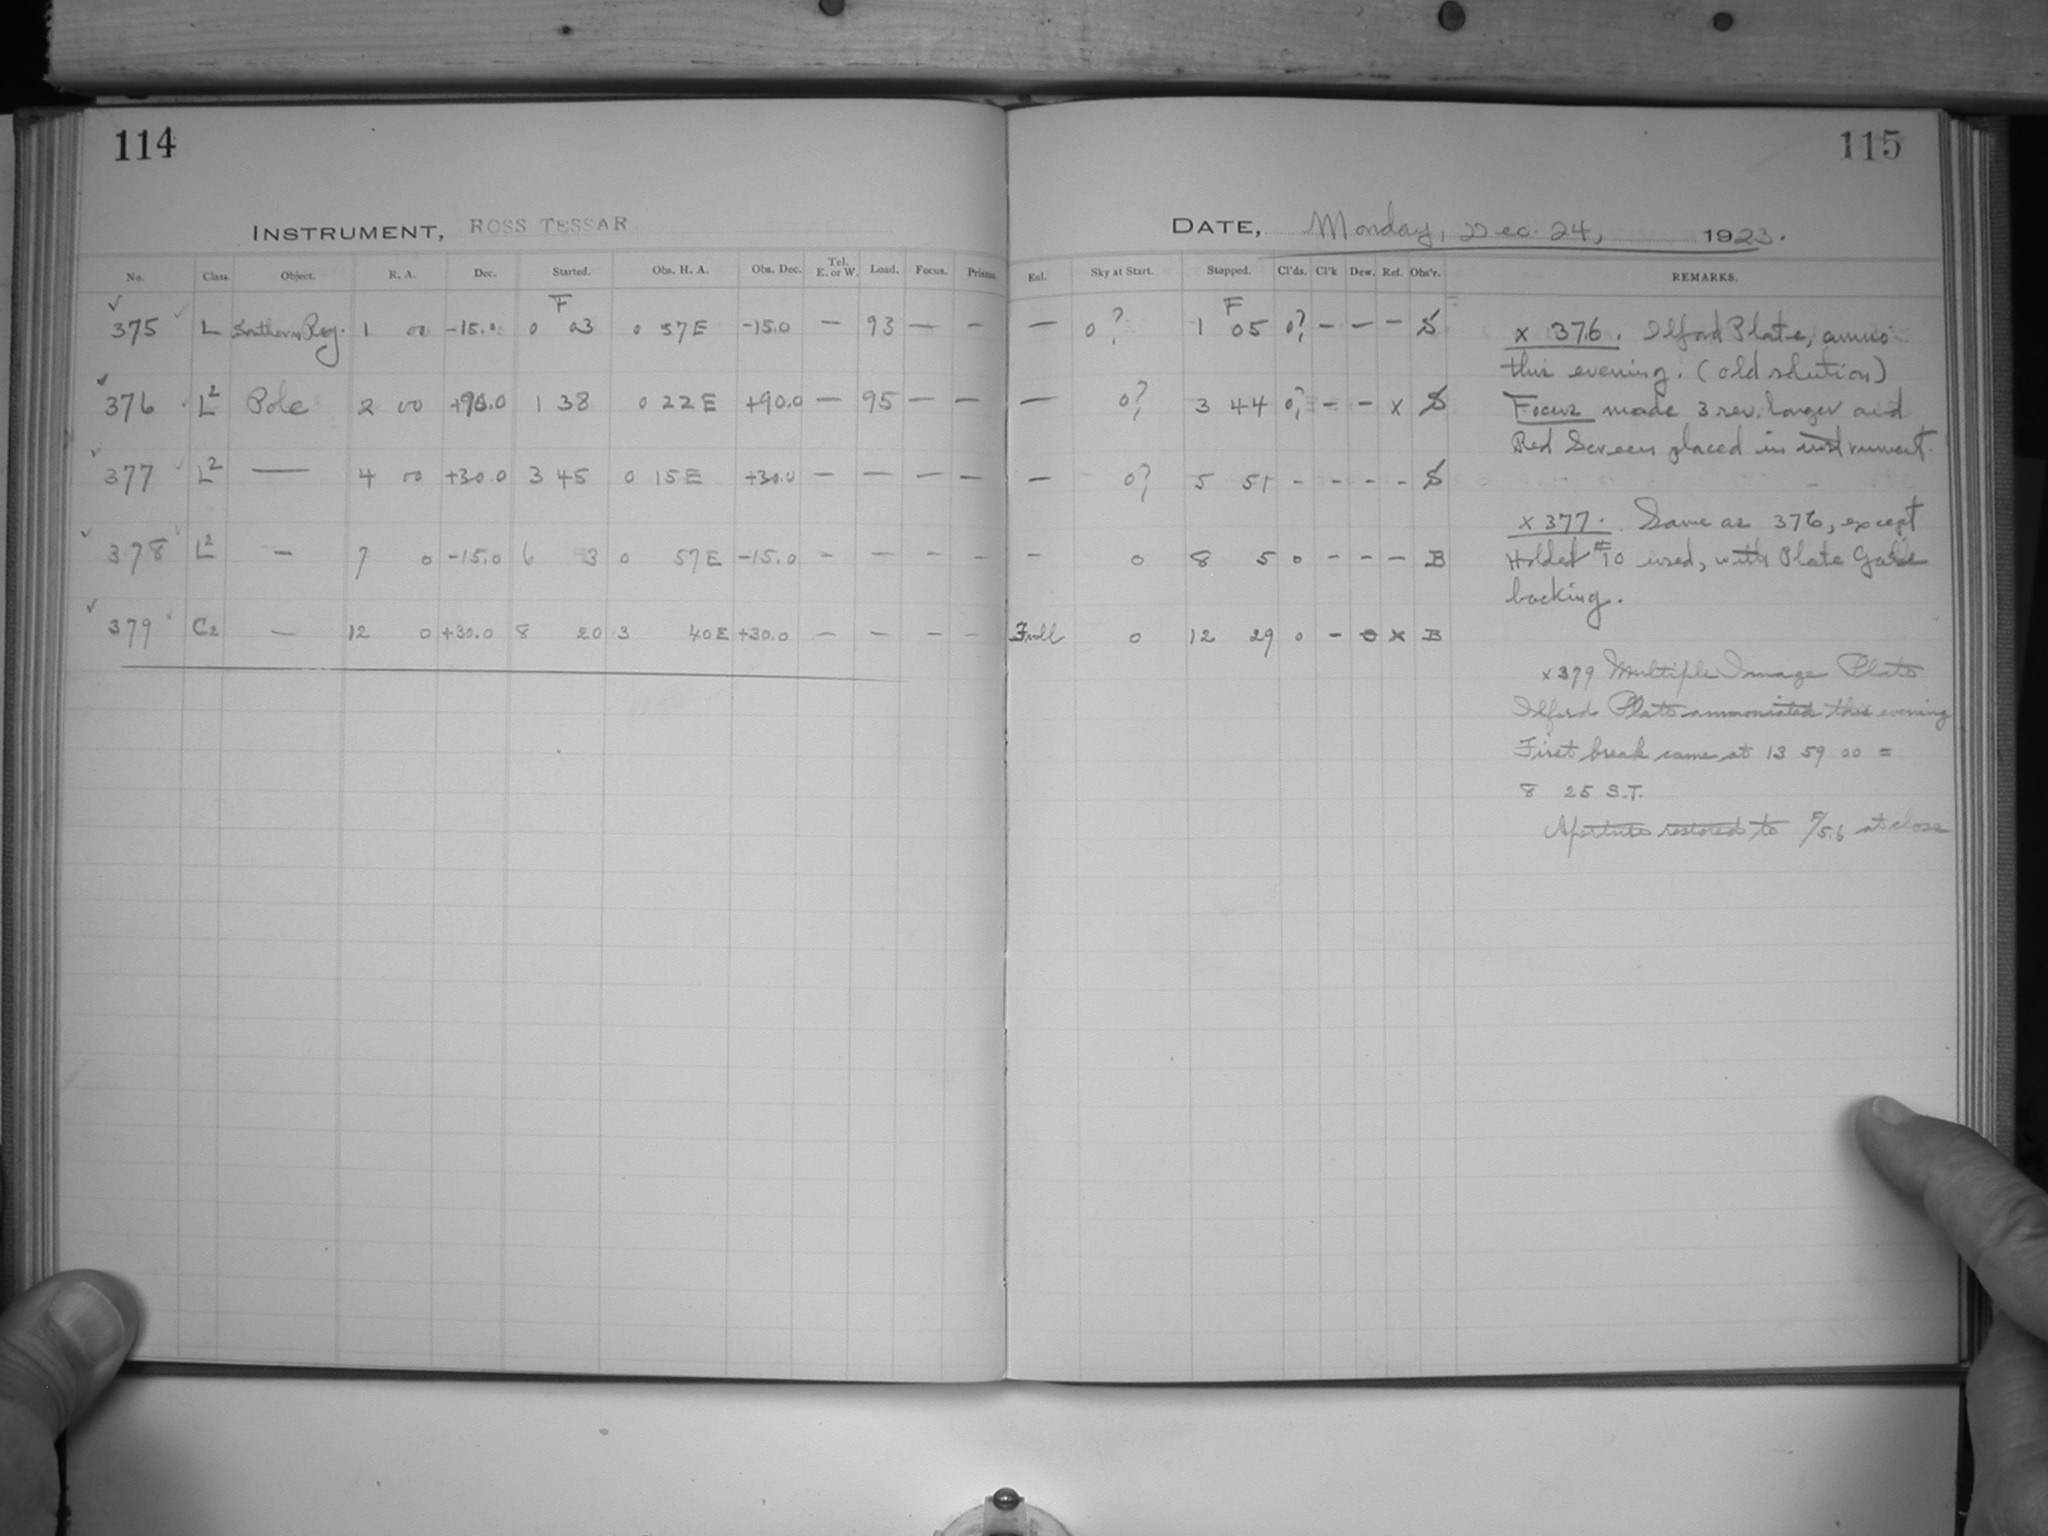 114
115
INSTRUMENT, ROSS TESSAR
DATE, Monday, Dec. 24, 1923.
No. Class. Object. R. A. Dec. Started. Obs. H. A. Obs. Dec. Tel. E. or W. Load. Focus. Prisms. Enl. Sky at Start. Stopped. Cl'ds. Cl'k Dew. Ref. Obs'r. REMARKS.
F F
✓ 375 ✓ L Southern Reg. 1 00 -15.0 0 03 0 57 E -15.0 — 93 — — — 0? 1 05 0? — — — S
✓ 376 ✓ L2 Pole 2 00 +90.0 1 38 0 22 E +90.0 — 95 — — — 0? 3 44 0? — — x S
✓ 377 ✓ L2 — 4 00 +30.0 3 45 0 15 E +30.0 — — — — — 0? 5 51 - - - - S
✓ 378 ✓ L2 — 7 0 -15.0 6 3 0 57 E -15.0 — — — — — 0 8 5 0 - - - B
✓ 379 ✓ C2 — 12 0 +30.0 8 20 3 40 E +30.0 — — — — Full 0 12 29 0 - 0 x B
x 376. Ilford Plate, ammo
this evening. (old solution)
Focus made 3 rev. longer and
Red Screen placed in instrument.
x 377. Same as 376, except
Holder #10 used, with Plate
backing.
x 379 Multiple Image Plate
Ilford Plate ammoniated this evening
First break came at 13 59 00 =
8 25 S.T.
Aperture restored to F/5.6 at close